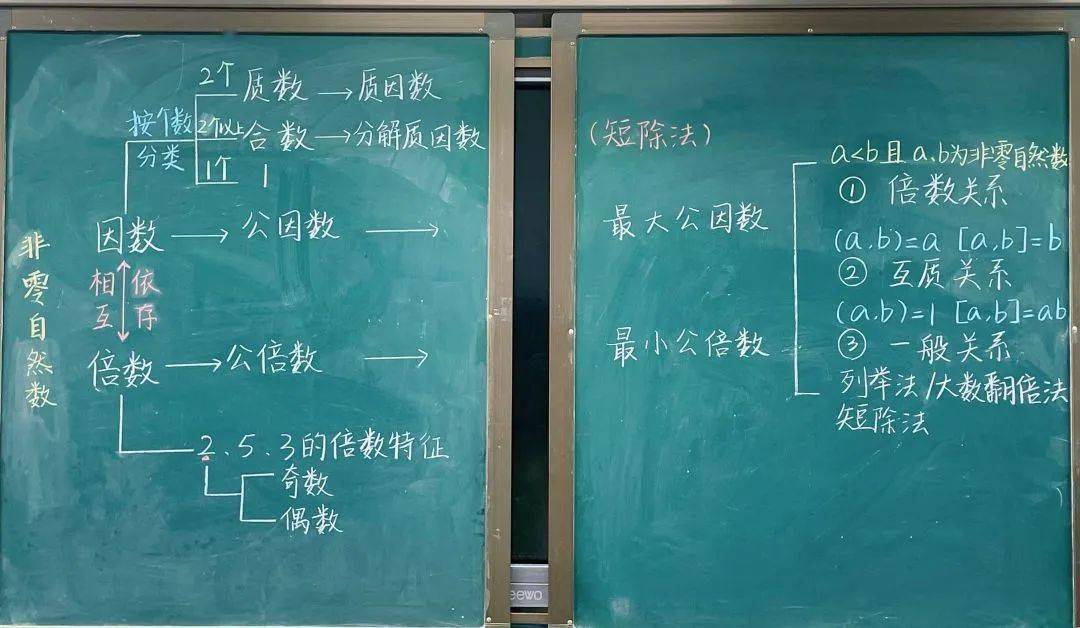 2个 质数 → 质因数
按个数 2个以上 合数 → 分解质因数
分类 1个 1
因数 → 公因数 →
非零自然数
相互依存
倍数 → 公倍数 →
2、5、3的倍数特征
奇数
偶数
(短除法)
最大公因数
最小公倍数
a<b且a、b为非零自然数
① 倍数关系
(a,b)=a [a,b]=b
② 互质关系
(a,b)=1 [a,b]=ab
③ 一般关系
列举法/大数翻倍法
短除法
eewo